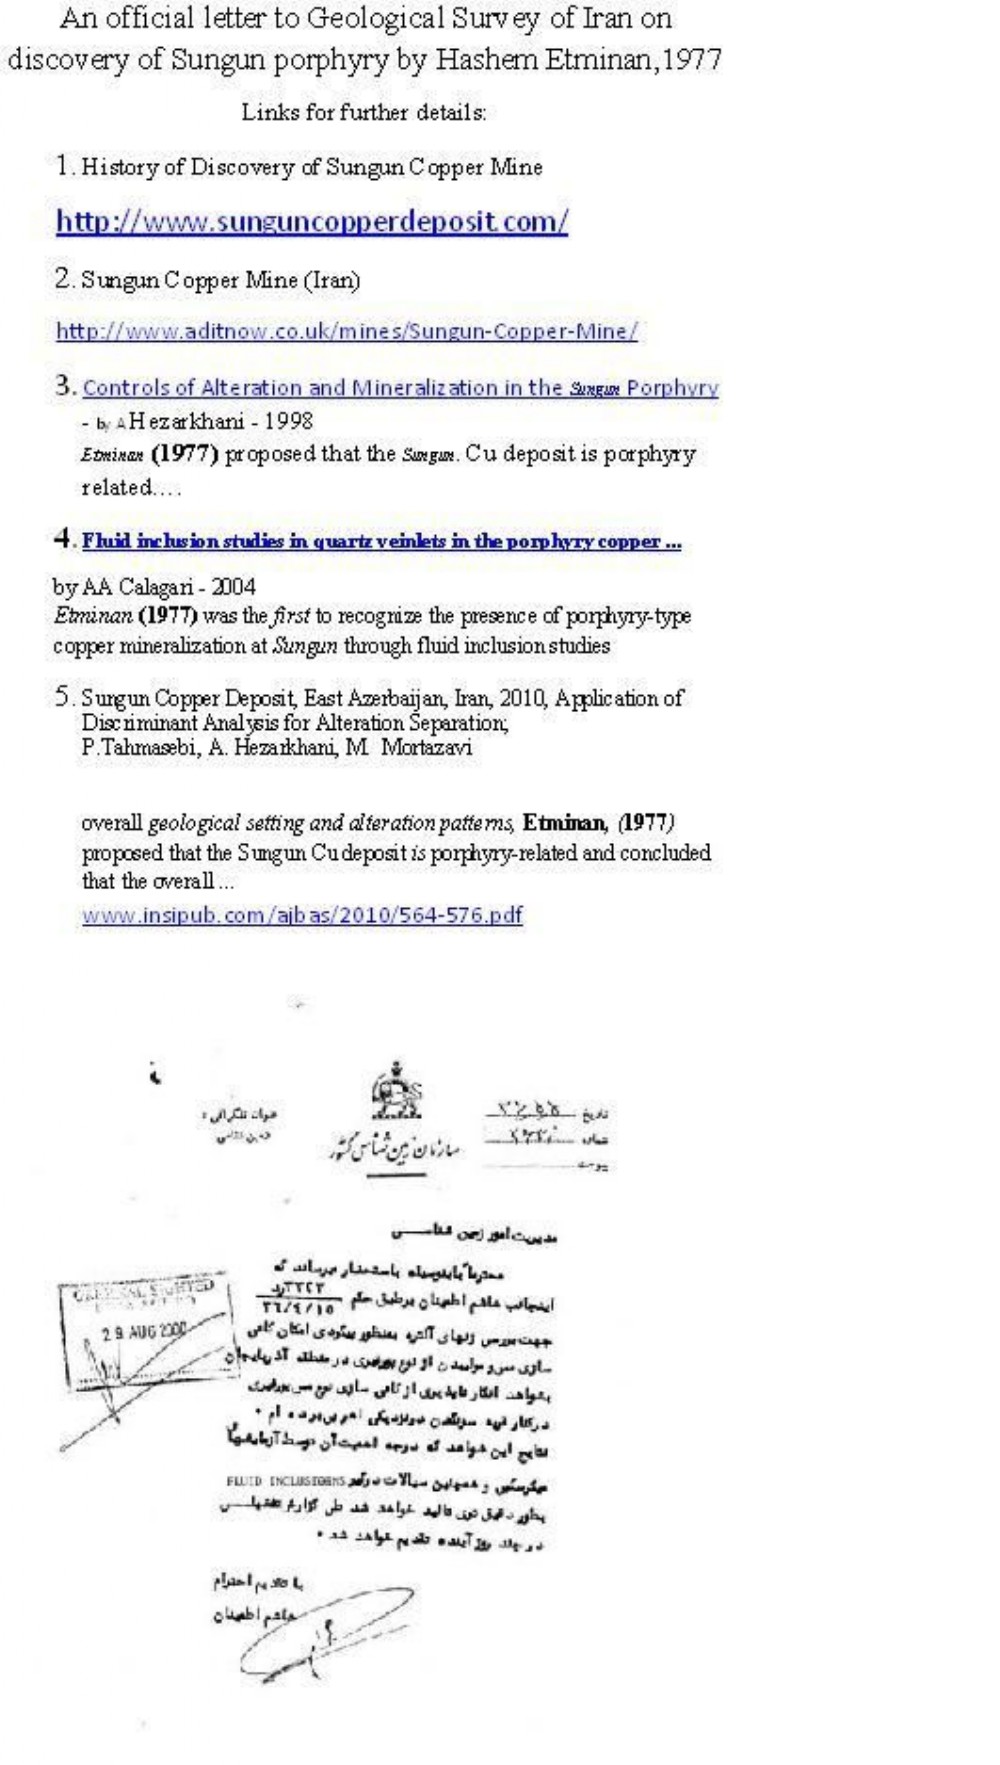 An official letter to Geological Survey of Iran on
discovery of Sungun porphyry by Hashem Etminan,1977
Links for further details:
1. History of Discovery of Sungun Copper Mine
http://www.sunguncopperdeposit.com/
2. Sungun Copper Mine (Iran)
http://www.aditnow.co.uk/mines/Sungun-Copper-Mine/
3. Controls of Alteration and Mineralization in the Sungun Porphyry
- by A Hezarkhani - 1998
Etminan (1977) proposed that the Sungun. Cu deposit is porphyry
related....
4. Fluid inclusion studies in quartz veinlets in the porphyry copper ...
by AA Calagari - 2004
Etminan (1977) was the first to recognize the presence of porphyry-type
copper mineralization at Sungun through fluid inclusion studies
5. Sungun Copper Deposit, East Azerbaijan, Iran, 2010, Application of
Discriminant Analysis for Alteration Separation;
P.Tahmasebi, A. Hezarkhani, M. Mortazavi
overall geological setting and alteration patterns, Etminan, (1977)
proposed that the Sungun Cu deposit is porphyry-related and concluded
that the overall ...
www.insipub.com/ajbas/2010/564-576.pdf
تاریخ
شماره
سازمان زمین شناسی کشور
مدیریت امور زمین شناسی
محترما باینوسیله باستحضار میرساند که
اینجانب هاشم اطمینان برطبق حکم
ORIGINAL SIGHTED
29 AUG 2000
جهت بررسی زونهای آلتره بمنظور پیگردی امکان کانی
سازی مس و مولیبدن از نوع پورفیری در منطقه آذربایجان
بشواهد انکار ناپذیری از کانی سازی نوع مس پورفیری
درکنار قریه سونگون درنزدیکی اهر پی برده ام •
نتایج این شواهد که درجه اهمیت آن توسط آزمایشهای
میکروسکپی و همچنین سیالات درگیر FLUID INCLUSIONS
بطور دقیق تری تائید خواهد شد طی گزارش تفصیلی
در چند روز آینده تقدیم خواهد شد •
با تقدیم احترام
هاشم اطمینان